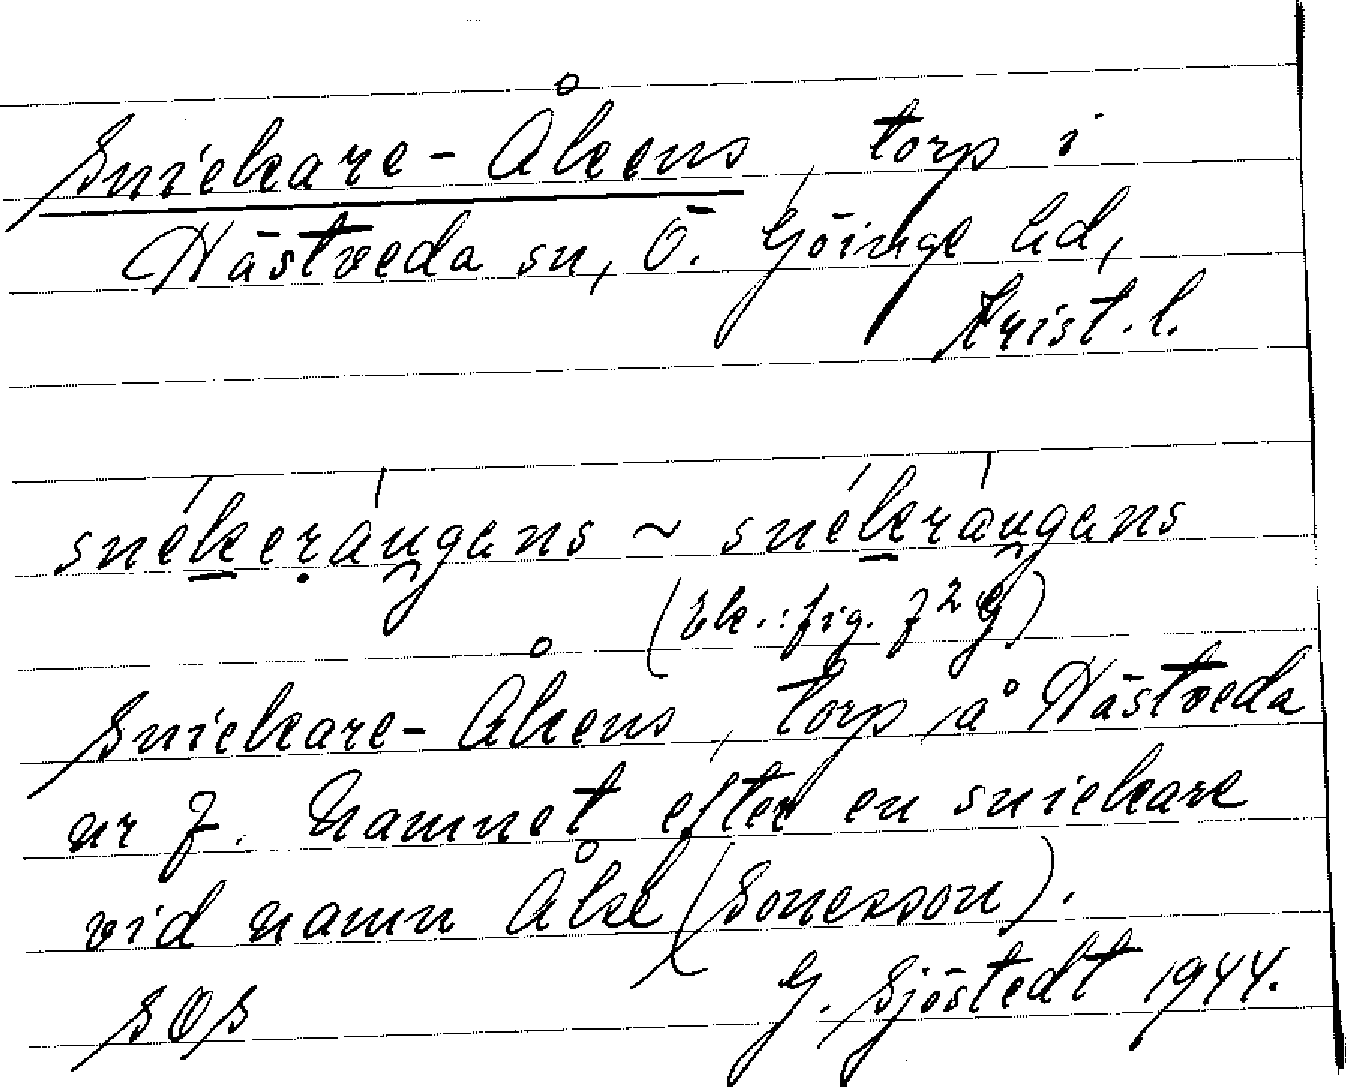 Snickare-Åkens, torp i
Hästveda sn, Ö. Göinge hd,
Krist. l.
snékeràugens ~ snékràugens
(Ek.: fig. 7² g)
Snickare-Åkens, torp å Hästveda
nr 7. Namnet efter en snickare
vid namn Åke (Sonesson).
SOS G. Sjöstedt 1944.